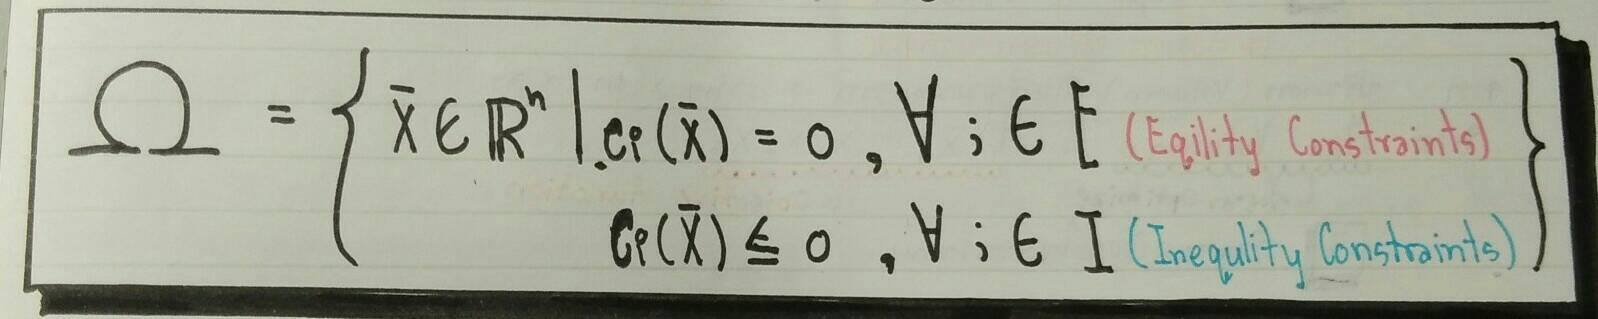 Ω = { x̄ ∈ ℝⁿ | ci(x̄) = 0 , ∀ i ∈ E (Eqility Constraints)
ci(x̄) ≤ 0 , ∀ i ∈ I (Inequlity Constraints) }